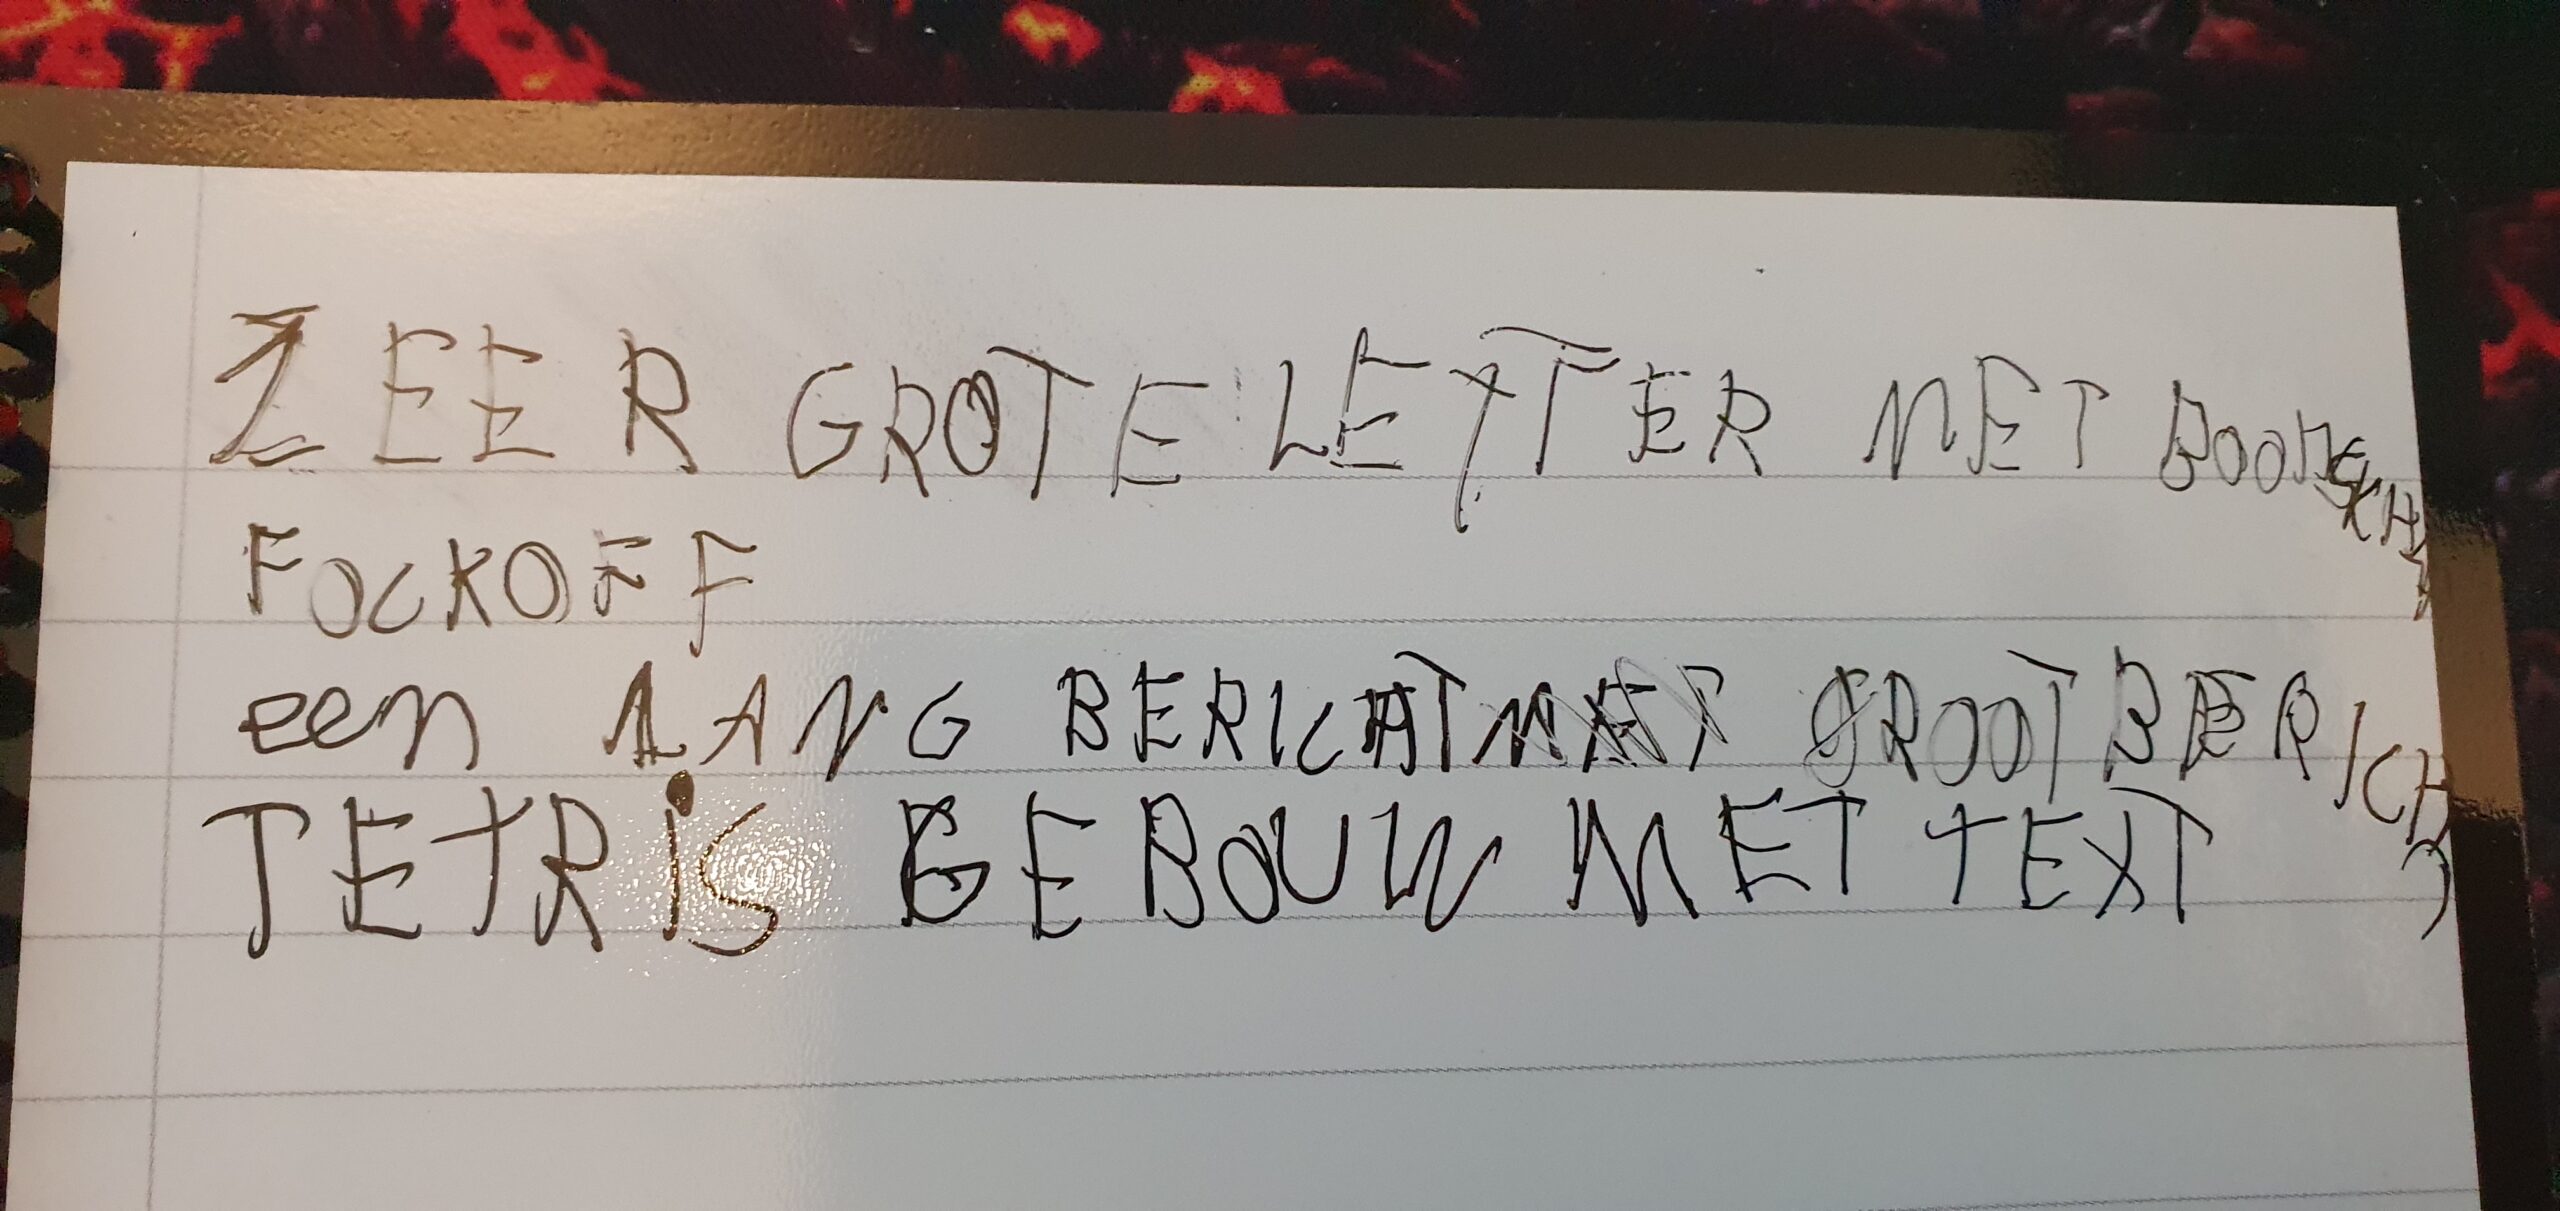 ZEER GROTE LETTER MET
FOCKOFF
een LANG BERICHT MET GROOT BERICHT
TETRiS GEBOUW MET TEXT